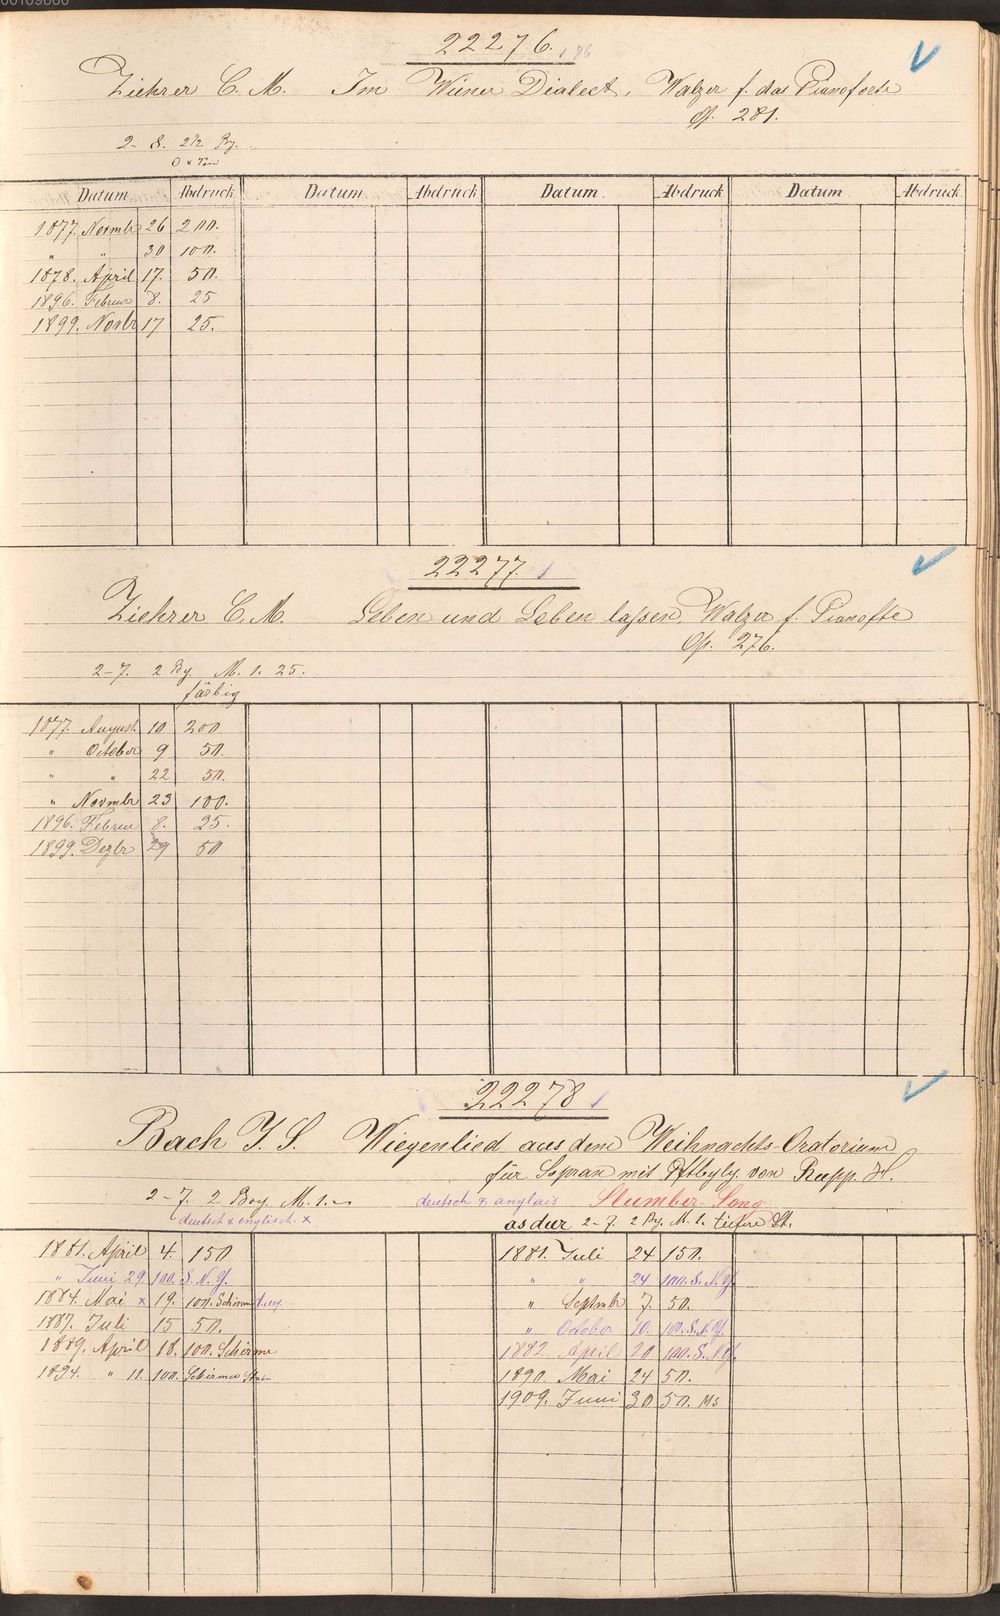 22276.
Ziehrer C. M. Im Wiener Dialect, Walzer f. das Pianoforte
Op. 281.
2-8. 2 1/2 Bg.
Datum Abdruck Datum Abdruck Datum. Abdruck Datum Abdruck
1877. Novmbr 26 200.
" " 30 100.
1878. April 17. 50.
1896. Februar 8. 25
1899. Novbr 17 25.
22277.
Ziehrer C. M. Leben und Leben lassen, Walzer f. Pianofte
Op. 276.
2-7. 2 Bg. M. 1. 25.
färbig
1877. August 10 200
" October 9 50.
" " 22 50.
" Novmbr 23 100.
1896. Februar 8. 25.
1899. Dezbr 29 50
22278
Bach J. S. Wiegenlied aus dem Weihnachts-Oratorium
für Sopran mit Pftbgltg. von Rupp. H.
2-7. 2 Bog. M. 1.- deutsch & anglais Slumber-Song
deutsch & englisch. x asdur 2-7. 2 Bg. M. 1. tiefere St.
1881. April 4. 150 1881. Juli 24 150.
" Juni 29. 100. S. N. Y. " " 24 100. S. N. Y.
1884. Mai x 19. 100. Schirmer " Septmbr 7. 50.
1887. Juli 15 50. " October 10. 100. S. N. Y.
1889. April 18. 100. Schirmer 1882. April 20 100. S. N. Y.
1894. " 11. 100. Schirmer 1890. Mai 24 50.
1909. Juni 30 50. Ms